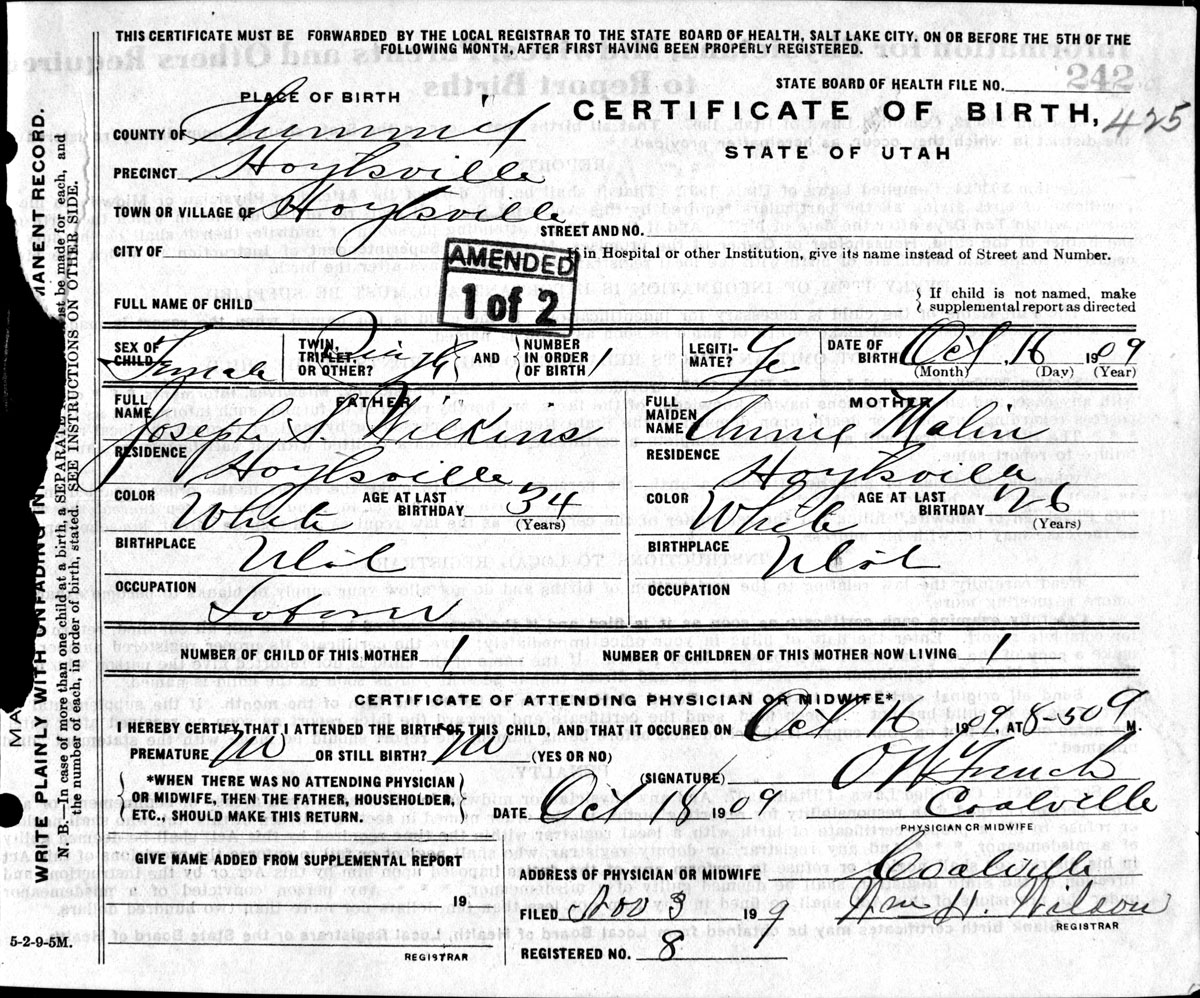 THIS CERTIFICATE MUST BE FORWARDED BY THE LOCAL REGISTRAR TO THE STATE BOARD OF HEALTH, SALT LAKE CITY, ON OR BEFORE THE 5TH OF THE
FOLLOWING MONTH, AFTER FIRST HAVING BEEN PROPERLY REGISTERED.
STATE BOARD OF HEALTH FILE NO. 242
PLACE OF BIRTH
CERTIFICATE OF BIRTH, 425
STATE OF UTAH
COUNTY OF Summit
PRECINCT Hoytsville
TOWN OR VILLAGE OF Hoytsville
STREET AND NO.
CITY OF
If in Hospital or other Institution, give its name instead of Street and Number.
AMENDED
1 of 2
FULL NAME OF CHILD
If child is not named, make
supplemental report as directed
SEX OF CHILD Female
TWIN, TRIPLET, OR OTHER?
AND NUMBER IN ORDER OF BIRTH
LEGITIMATE?
DATE OF BIRTH Oct 16 1909
(Month) (Day) (Year)
FATHER
FULL NAME Joseph S. Wilkins
RESIDENCE Hoytsville
COLOR White
AGE AT LAST BIRTHDAY 34
(Years)
BIRTHPLACE Utah
OCCUPATION Laborer
MOTHER
FULL MAIDEN NAME Annie Malin
RESIDENCE Hoytsville
COLOR White
AGE AT LAST BIRTHDAY 26
(Years)
BIRTHPLACE Utah
OCCUPATION
NUMBER OF CHILD OF THIS MOTHER 1
NUMBER OF CHILDREN OF THIS MOTHER NOW LIVING 1
CERTIFICATE OF ATTENDING PHYSICIAN OR MIDWIFE*
I HEREBY CERTIFY THAT I ATTENDED THE BIRTH OF THIS CHILD, AND THAT IT OCCURED ON Oct 16 1909 AT 8-50 M.
PREMATURE No OR STILL BIRTH? No (YES OR NO)
*WHEN THERE WAS NO ATTENDING PHYSICIAN
OR MIDWIFE, THEN THE FATHER, HOUSEHOLDER,
ETC., SHOULD MAKE THIS RETURN.
(SIGNATURE)
DATE Oct 16 1909 Coalville
PHYSICIAN OR MIDWIFE
GIVE NAME ADDED FROM SUPPLEMENTAL REPORT
19
REGISTRAR
ADDRESS OF PHYSICIAN OR MIDWIFE Coalville
FILED Nov 3 19 9 Wm H. Wilson
REGISTRAR
REGISTERED NO. 8
5-2-9-5M.
WRITE PLAINLY WITH UNFADING
MANENT RECORD.
N. B.—In case of more than one child at a birth, a SEPARATE
must be made for each, and
the number of each, in order of birth, stated. SEE INSTRUCTIONS ON OTHER SIDE.